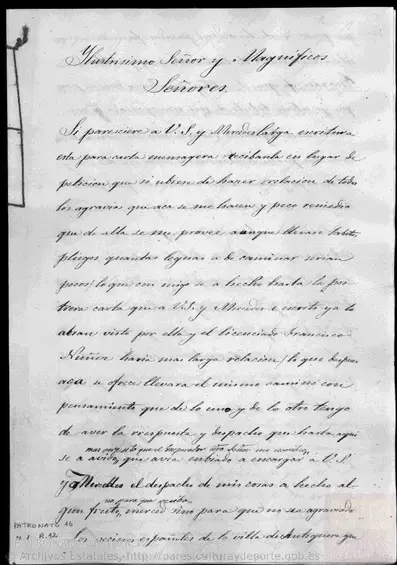 Ylustrisimo Señor y Magnificos
Señores.
Si paresciere a V. S. y Mercedes larga escritura
esta para carta mensagera recibanla en lugar de
peticion que si ubiese de hazer relacion de todos
los agravios que aca se me hazen y poco remedio
que de alla se me provee aunque lleuan tantos
pliegos quantas leguas a de caminar serian
pocos; lo que con migo se a hecho hasta la pos-
trera carta que a V. S. y Mercedes e escrito ya lo
abran visto por ella y el licenciado Francisco
Nuñez haria mas larga relacion; lo que despues
aca se ofrece llevara el mismo camino con
pensamiento que de lo uno y de lo otro tengo
de aver la respuesta y despacho que hasta aqui
se a avido, que avia enbiado a encargar a V. S.
y Mercedes el despacho de mis cosas a hecho al-
no para que reciba
gun fruto, merced sino para que no sea agraviado
Los vecinos españoles de la villa de Antequera que
PATRONATO 16
N. 1 R. 12
© Archivos Estatales, http://pares.culturaydeporte.gob.es